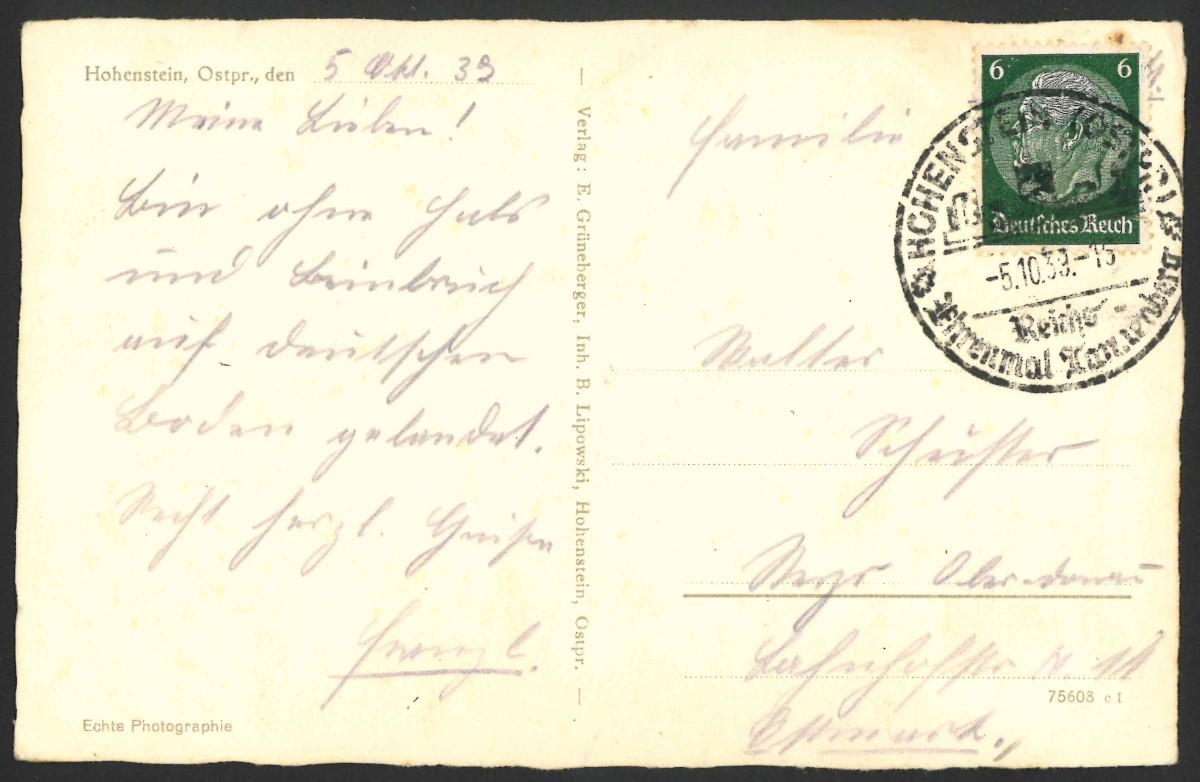 Hohenstein, Ostpr., den 5 Okt. 39
Meine Lieben!
Bin ohne Hals
und Beinbruch
auf deutschen
Boden gelandet.
Recht herzl. Grüße
Franzl.
Echte Photographie
Verlag: E. Grüneberger, Inh. B. Lipowski, Hohenstein, Ostpr.
6 6
Deutsches Reich
HOHENSTEIN (OSTPR)
-5.10.39.-15
Reichs
Ehrenmal Tannenberg
Familie
Walter
Schuster
Steyr Oberdonau
Bahnhofstr
Ostmark.
75608 c I